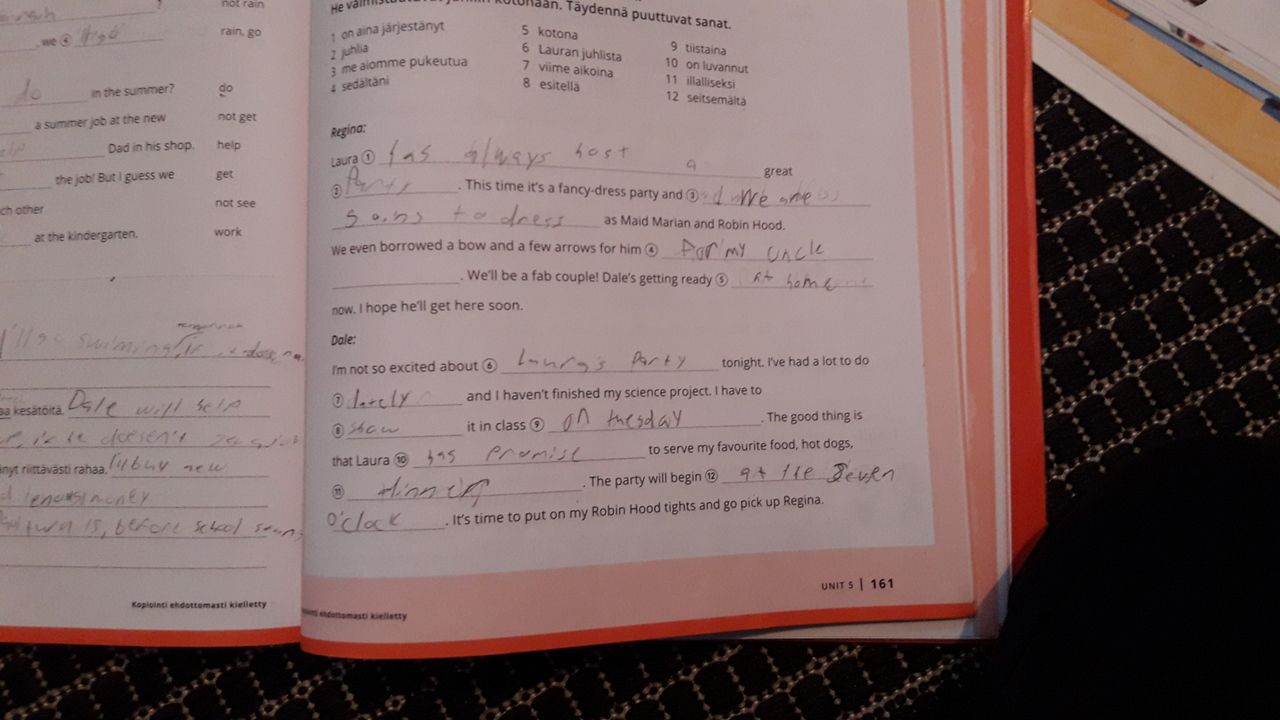 not rain
?
, we 4
rain, go
do in the summer? do
a summer job at the new not get
Dad in his shop. help
the job! But I guess we get
ch other not see
at the kindergarten. work
I'll go swimming, if
kesätöitä. Dale will help
he doesen't
nyt riittävästi rahaa. I'll buy new
money
is, before school
Kopiointi ehdottomasti kielletty
kotonaan. Täydennä puuttuvat sanat.
1 on aina järjestänyt
2 juhlia
3 me aiomme pukeutua
4 sedältäni
5 kotona
6 Lauran juhlista
7 viime aikoina
8 esitellä
9 tiistaina
10 on luvannut
11 illalliseksi
12 seitsemältä
Regina:
Laura 1 has always host a great
2 Party . This time it's a fancy-dress party and 3 we are
going to dress as Maid Marian and Robin Hood.
We even borrowed a bow and a few arrows for him 4 for my uncle
. We'll be a fab couple! Dale's getting ready 5 at home
now. I hope he'll get here soon.
Dale:
I'm not so excited about 6 Laura's Party tonight. I've had a lot to do
7 lately and I haven't finished my science project. I have to
8 show it in class 9 on tuesday . The good thing is
that Laura 10 has promise to serve my favourite food, hot dogs,
11 dinner . The party will begin 12 at the seven
o'clock . It's time to put on my Robin Hood tights and go pick up Regina.
UNIT 5 | 161
ehdottomasti kielletty